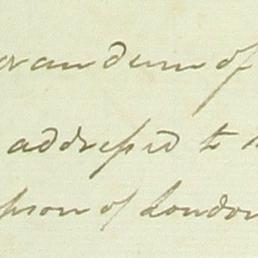 orandum of
addressed to
pson of London